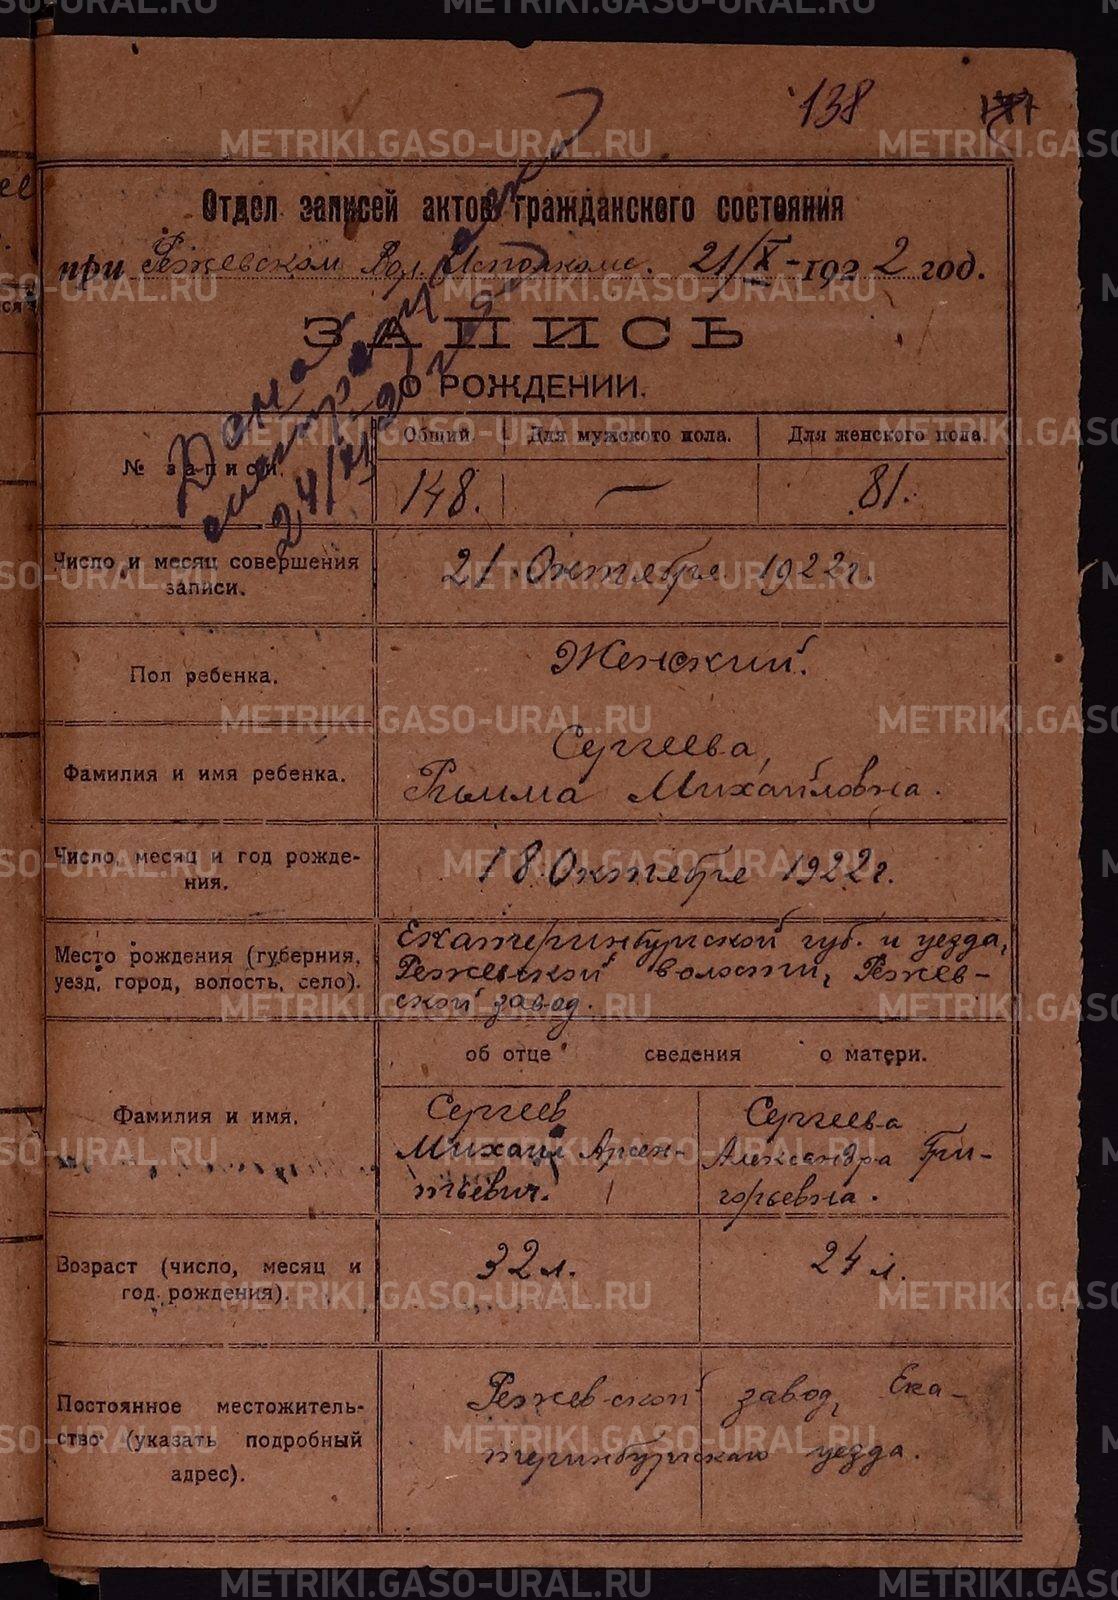 138
Отдел записей актов гражданского состояния
при Режевском Вол. Исполкоме. 21/X-1922 год.
ЗАПИСЬ
О РОЖДЕНИИ.
Дана
24/
№ записи.
Общий. Для мужского пола. Для женского пола.
148. — 81.
Число и месяц совершения
записи.
21 Октября 1922 г.
Пол ребенка.
Женский.
Фамилия и имя ребенка.
Сергеева,
Римма Михайловна.
Число, месяц и год рожде-
ния.
18 Октября 1922 г.
Место рождения (губерния,
уезд, город, волость, село).
Екатеринбургской губ. и уезда,
Режевской волости, Режев-
ской завод.
об отце сведения о матери.
Фамилия и имя.
Сергеев
Михаил Арсен-
тьевич.
Сергеева
Александра Гри-
горьевна.
Возраст (число, месяц и
год рождения).
32 л.
24 л.
Постоянное местожитель-
ство (указать подробный
адрес).
Режевской завод, Ека-
теринбургского уезда.
METRIKI.GASO-URAL.RU